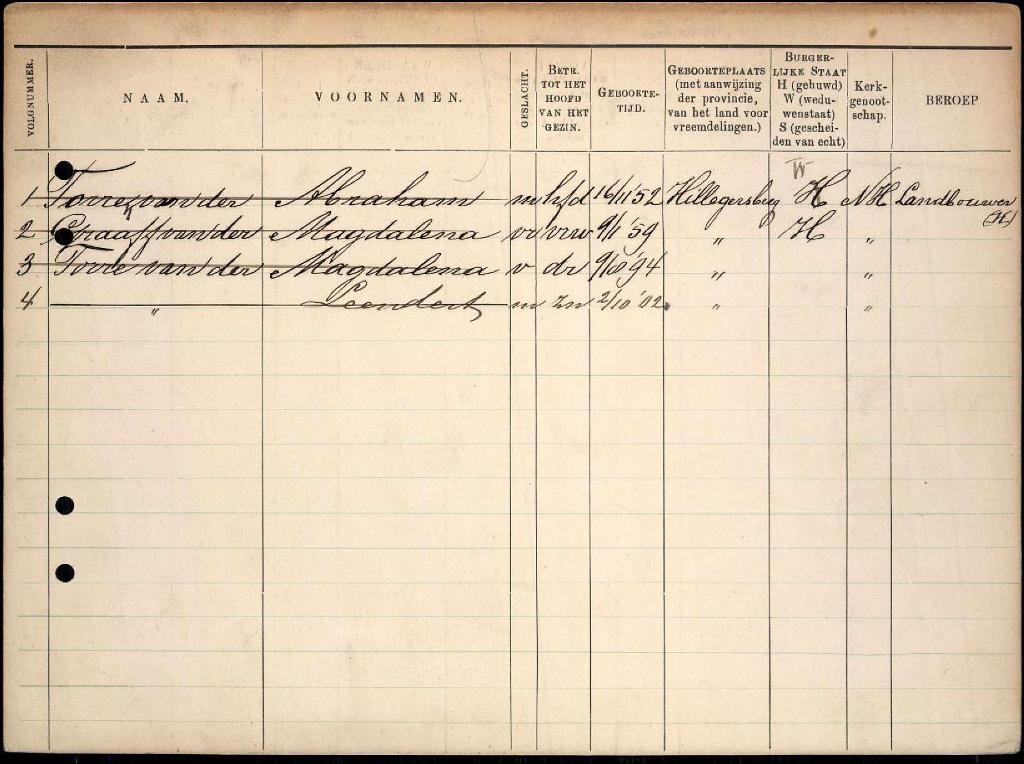 VOLGNUMMER. NAAM. VOORNAMEN. GESLACHT. BETR. TOT HET HOOFD VAN HET GEZIN. GEBOORTE-TIJD. GEBOORTEPLAATS (met aanwijzing der provincie, van het land voor vreemdelingen.) BURGER-LIJKE STAAT H (gehuwd) W (wedu-wenstaat) S (geschei-den van echt) Kerk-genoot-schap. BEROEP
W
1 Torre van der Abraham m hfd 16/11 '52 Hillegersberg H NH Landbouwer
(H)
2 Graaff van der Magdalena vr vrw 9/1 '59 " H "
3 Torre van der Magdalena v dr 9/10 '94 " "
4 " Leendert m zn 2/10 '02 " "